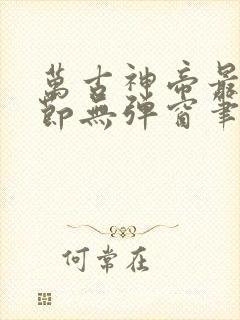 萬古神帝最
節無彈窗筆
何常在